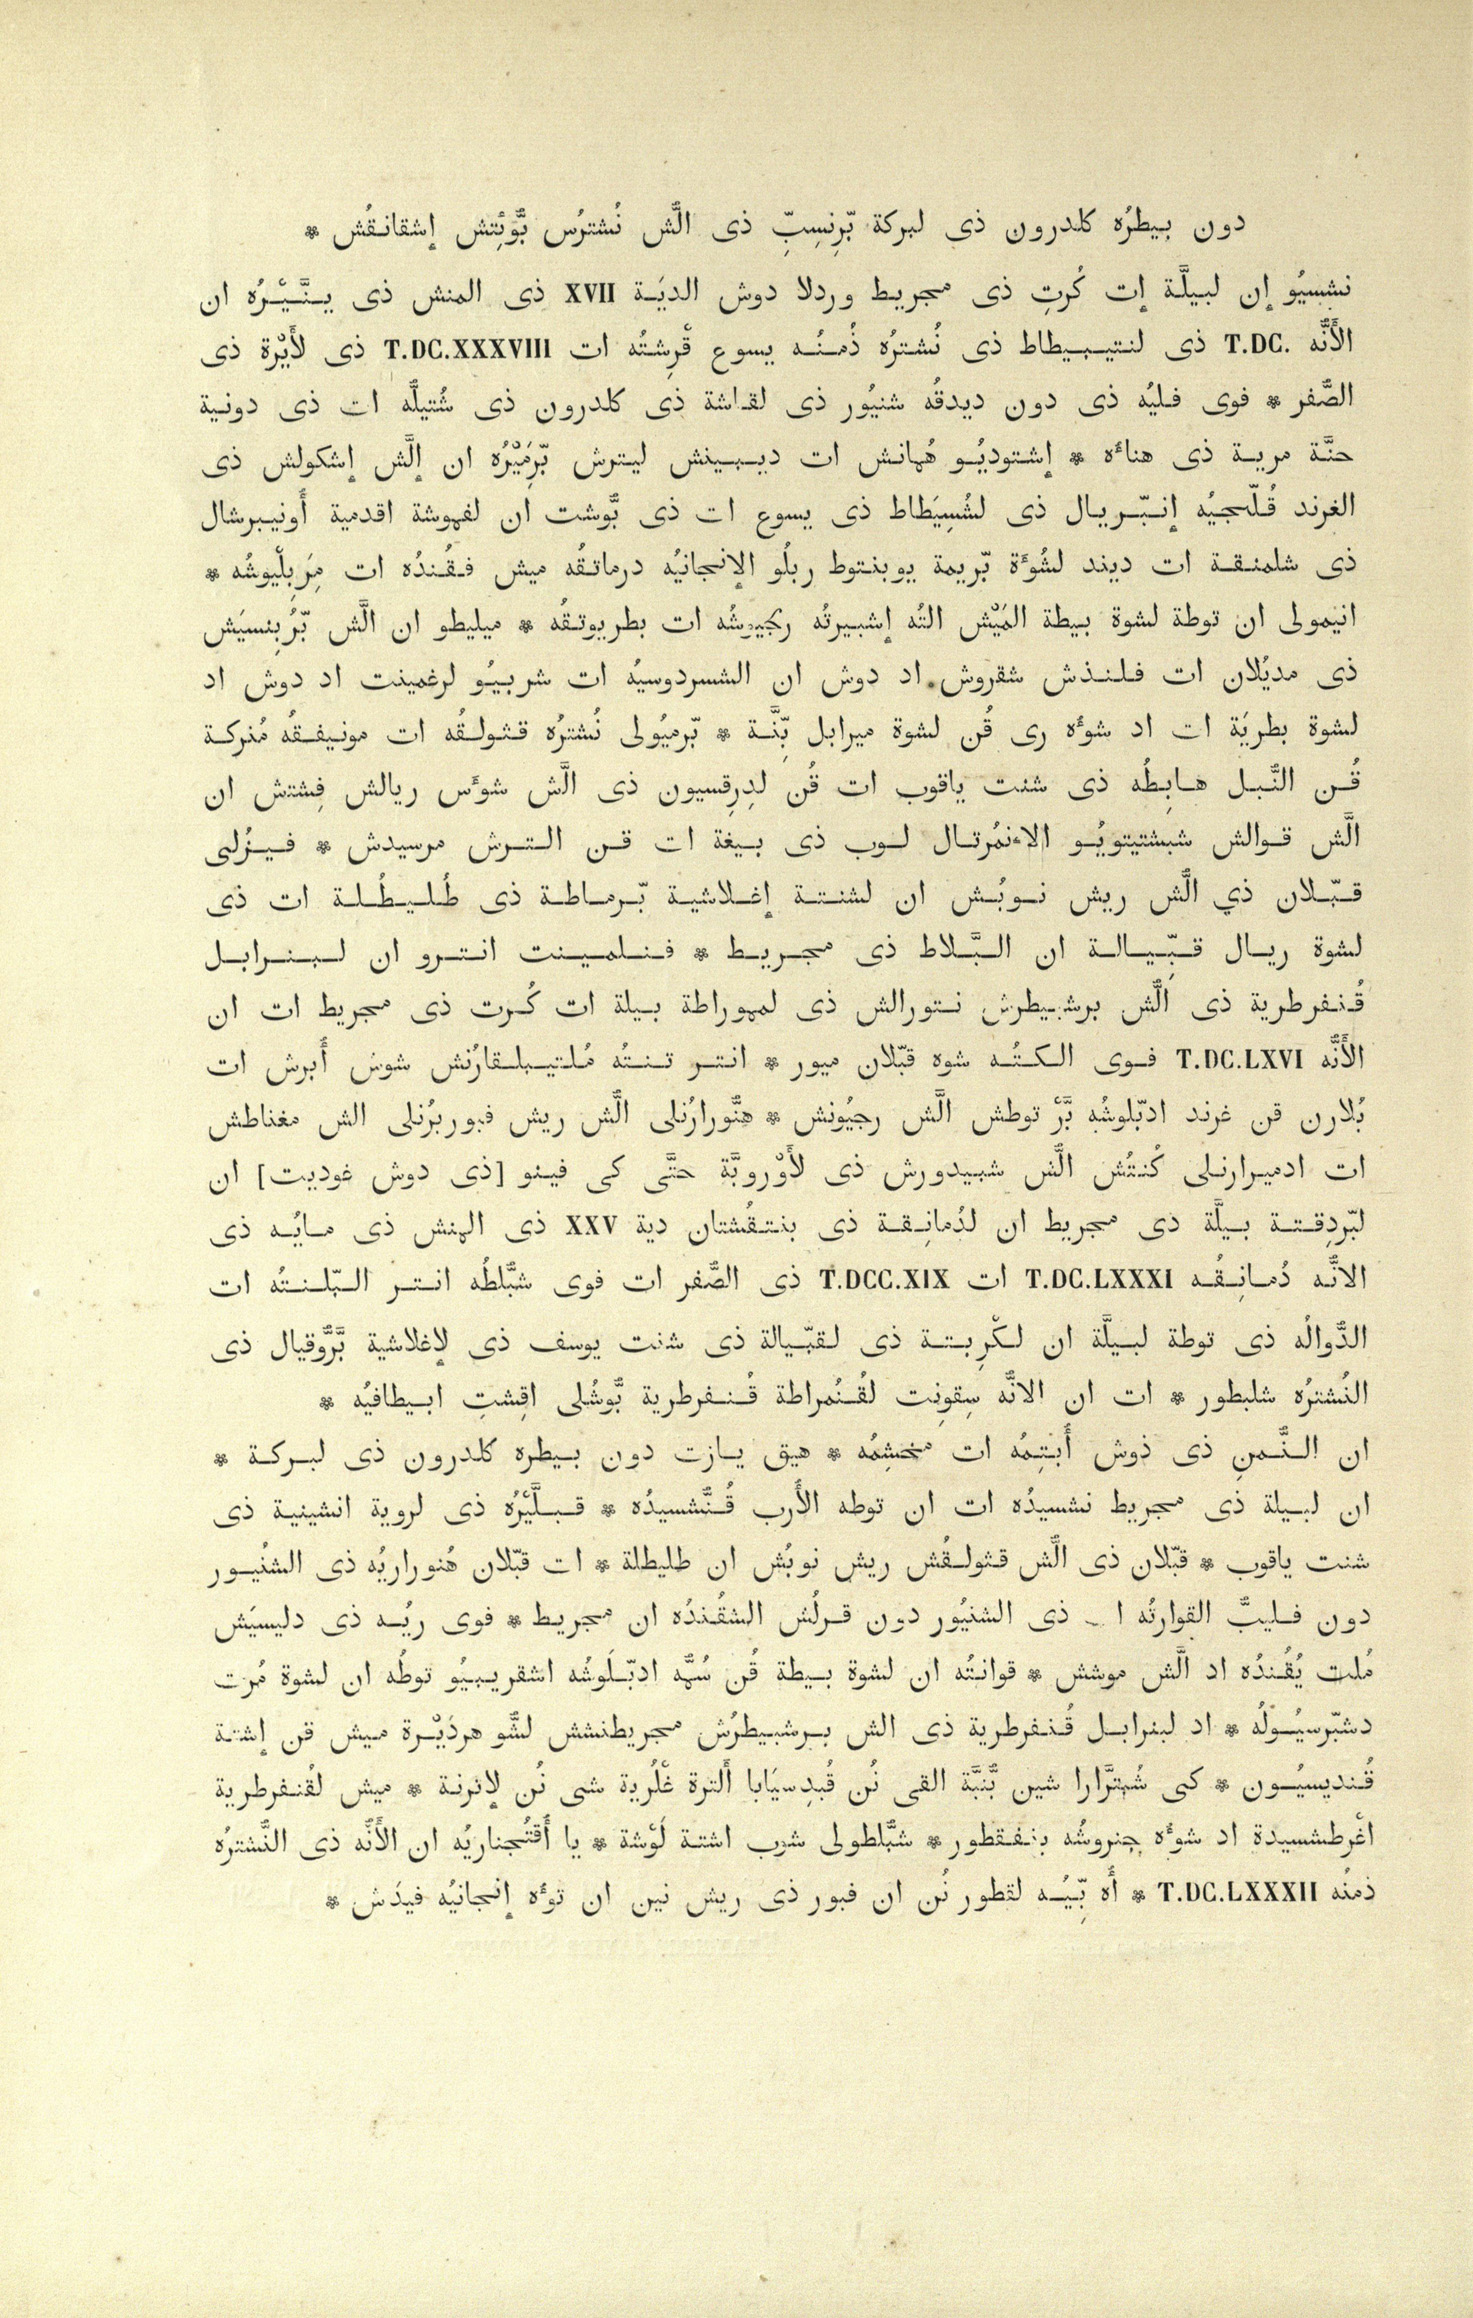 دون بيطرُه كلدرون ذى لبركة بّرِنسِبِّ ذى الَّش نُشترُس بُّؤَتِش إشقانـقُش *
نشسيُو إن لبيلَّة إت كُرتِ ذى مجريط وردلا دوش الديَة XVII ذى المنش ذى ينَّـيْـرُه ان
الأَنُّه T.DC. ذى لنتيـبـيطاط ذى نُشترُه ذُمـنُـه يسوع قْرِشتُه ات T.DC.XXXVIII ذى لأَيْرة ذى
الصَّفر * فوى فليُه ذى دون ديدقُه شنيُور ذى لقاشة ذى كلدرون ذى شُتيلُّه ات ذى دونية
حنَّة مريـة ذى هناءُه * إشتوديُـو هُمانـش ات ديـبـينش ليترش بّرِمَيْرُه ان إلَّش إشكولش ذى
الغرند قُـلّـجيُه إنـبّـريـال ذى لشُسِيَطاط ذى يسوع ات ذى بُّوشت ان لفهوشة اقدمية أُونيبرشال
ذى شلمنـقـة ات ديند لشُؤَة بّريمة يوبنتوط ربلُو الإنجانيُه درماتـقُه ميش فـقُـندُه ات مِرَبِلْيوشُه *
انيمولى ان توطة لشوة بيطة المَيْش التُه إشبيرتُه رجيوشُه ات بطريوتـقُه * ميليطو ان الَّش بّرُبِنسيَش
ذى مديُلان ات فلـنـذش شقروش اد دوش ان الشسردوسيُه ات شربـيُـو لرغمينت اد دوش اد
لشوة بطريَة ات اد شؤَه رى قُن لشوة ميرابل بِّنَّـة * بّرميُولى نُشترُه قـثولـقُه ات مونـيفـقُه مُنركـة
قُـن النُّـبل هـابِـطُه ذى شنت ياقوب ات قُن لدِرِقسيون ذى الَّش شؤَس ريالش فِشتش ان
الَّش قـوالش شبشتيتويُـو الاءنمُرتـال لـوب ذى بـيغة ات قـن الـتـرش مرسيدش * فـيـزُلى
قـبّـلان ذي الَّش ريش نـوبُـش ان لشنـتـة إغـلاشيـة بّـرمـاطـة ذى طُـلـيـطُـلـة ات ذى
لشوة ريـال قـبِّـيـالـة ان الـبَّـلاط ذى مجـريـط * فـنـلـمـيـنت انـتـرو ان لـبـنـرابـل
قُـنـفرطرية ذى الَّش برشبيطرش نـتورالش ذى لمهوراطة بـيلة ات كُـرت ذى مجريط ات ان
الأَنُّه T.DC.LXVI فـوى الـكـتُـه شوه قبّلان ميور * انـتـر تـنـتُه مُـلـتيـبلـقارُنش شوش أُبرش ات
بُلارن قن غرند ادبّلوشُه بَّرْ توطش الَّش رجيُونش * هنُّورارُنلى الَّش ريش فبوربزُنلى الش مغناطش
ات ادمـيرارنـلى كُـنـتُش الَّش شبيدورش ذى لأَوْروبَّة حتَّى كى فينو [ذى دوش غوديت] ان
لبّردِقـتـة بـيلَّة دى مجريط ان لدُمانِـقـة ذى بنتـقُشتان دية XXV ذى المنش ذى مـايُـه ذى
الانُّـه دُمـانِـقُـه T.DC.LXXXI ات T.DCC.XIX ذى الصَّفر ات فوى شبُّلطُه انـتـر الـبّـلـنـتُه ات
الدُّوالُه ذى توطة لبـيلَّة ان لـكْرِبـتـة ذى لـقـبّـيالة ذى شنت يوسف ذى لإغلاشية بَّرُّوقيال ذى
النُشترُه شلبطور * ات ان الانُّه سِقونِت لقُـنُمراطة قُـنـفرطرية بُّوشُلى اقِشتِ ابـيطافيُه *
ان الـنُّـمنِ ذى ذوش أُبـتِـمُه ات مخشِمُه * هيق يـازت دون بـيطره كلدرون ذى لبـركـة *
ان لبـيلة ذى مجريط نشسيدُه ات ان توطه الأُرب قُـنُّشسيدُه * قـبـلَّيْرُه ذى لروية انشينية ذى
شنت ياقوب * قبّلان ذى الَّش قثولـقُش ريش نوبُش ان طليطلة * ات قبّلان هُنوراريُه ذى الشنُيـور
دون فـليبُّ القوارتُه ا ـ ذى الشنيُور دون قـرلُش الشقُـندُه ان مجريـط * فوى ريُـه ذى دليسيَش
مُلت يُقُـندُه اد الَّش موشش * قوانـتُه ان لشوة بـيطة قُن سُمُّه ادبّـلَوشُه اشقريـبـيُو توطُه ان لشوة مُرت
دشبّرسيُـوْلُه * اد لبنرابـل قُـنـفرطرية ذى الش بـرشبـيطرُش مجريطنشش لشُّو هردَيْـرة ميش قن إشتـة
قُـنديسيُـون * كى شُبترَّارا شين بُّنبَّة القى نُن قُبدِسيَابا أَلترة غْلُرية شى نُن لإنرنـة * ميش لقُنـفرطرية
اغْرطشسيدة اد شؤَه جنروشُه بنفـقطور * شبُّلطولى شوب اشتـة لَوْشة * يا أُقـتُجناريُه ان الأَنُّه ذى النُّشترُه
ذمنُه T.DC.LXXXII * أُه بِّـيُـه لقطور نُن ان فبور ذى ريش نين ان تؤَه إنجانيُه فيدَش *